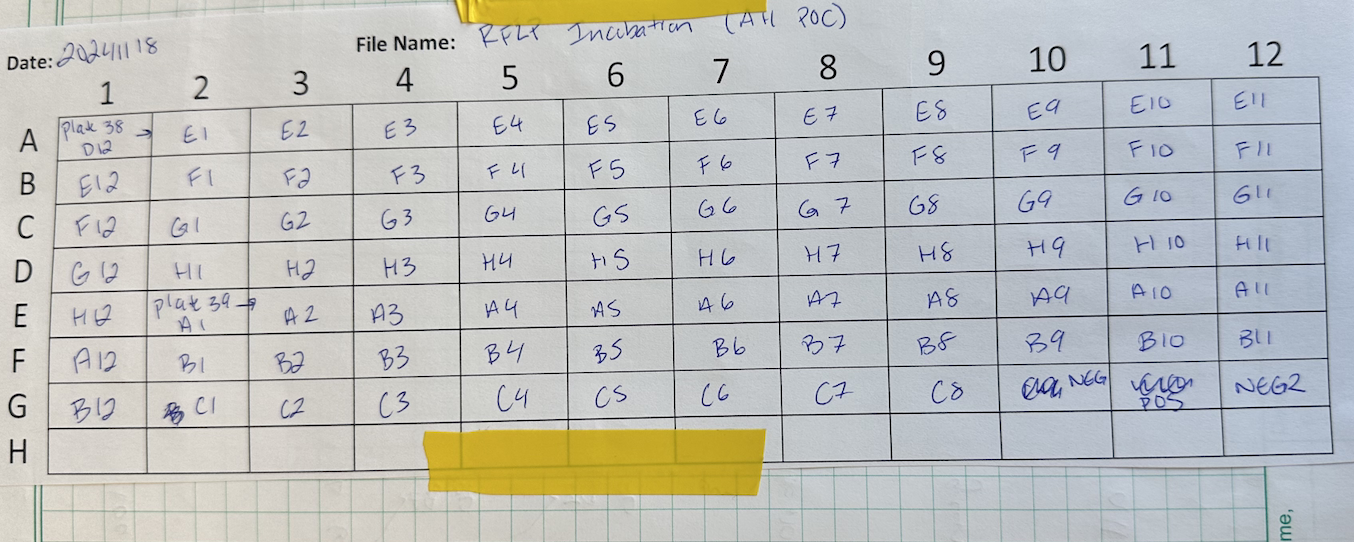 Date: 20241118 File Name: RFLP Incubation (AH POC)
1 2 3 4 5 6 7 8 9 10 11 12
A Plate 38 → D12 E1 E2 E3 E4 E5 E6 E7 E8 E9 E10 E11
B E12 F1 F2 F3 F4 F5 F6 F7 F8 F9 F10 F11
C F12 G1 G2 G3 G4 G5 G6 G7 G8 G9 G10 G11
D G12 H1 H2 H3 H4 H5 H6 H7 H8 H9 H10 H11
E H12 Plate 39 → A1 A2 A3 A4 A5 A6 A7 A8 A9 A10 A11
F A12 B1 B2 B3 B4 B5 B6 B7 B8 B9 B10 B11
G B12 C1 C2 C3 C4 C5 C6 C7 C8 NEG POS NEG2
H
me,